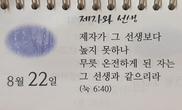 제자와 선생
제자가 그 선생보다
높지 못하나
무릇 온전하게 된 자는
그 선생과 같으리라
(눅 6:40)
8월 22일